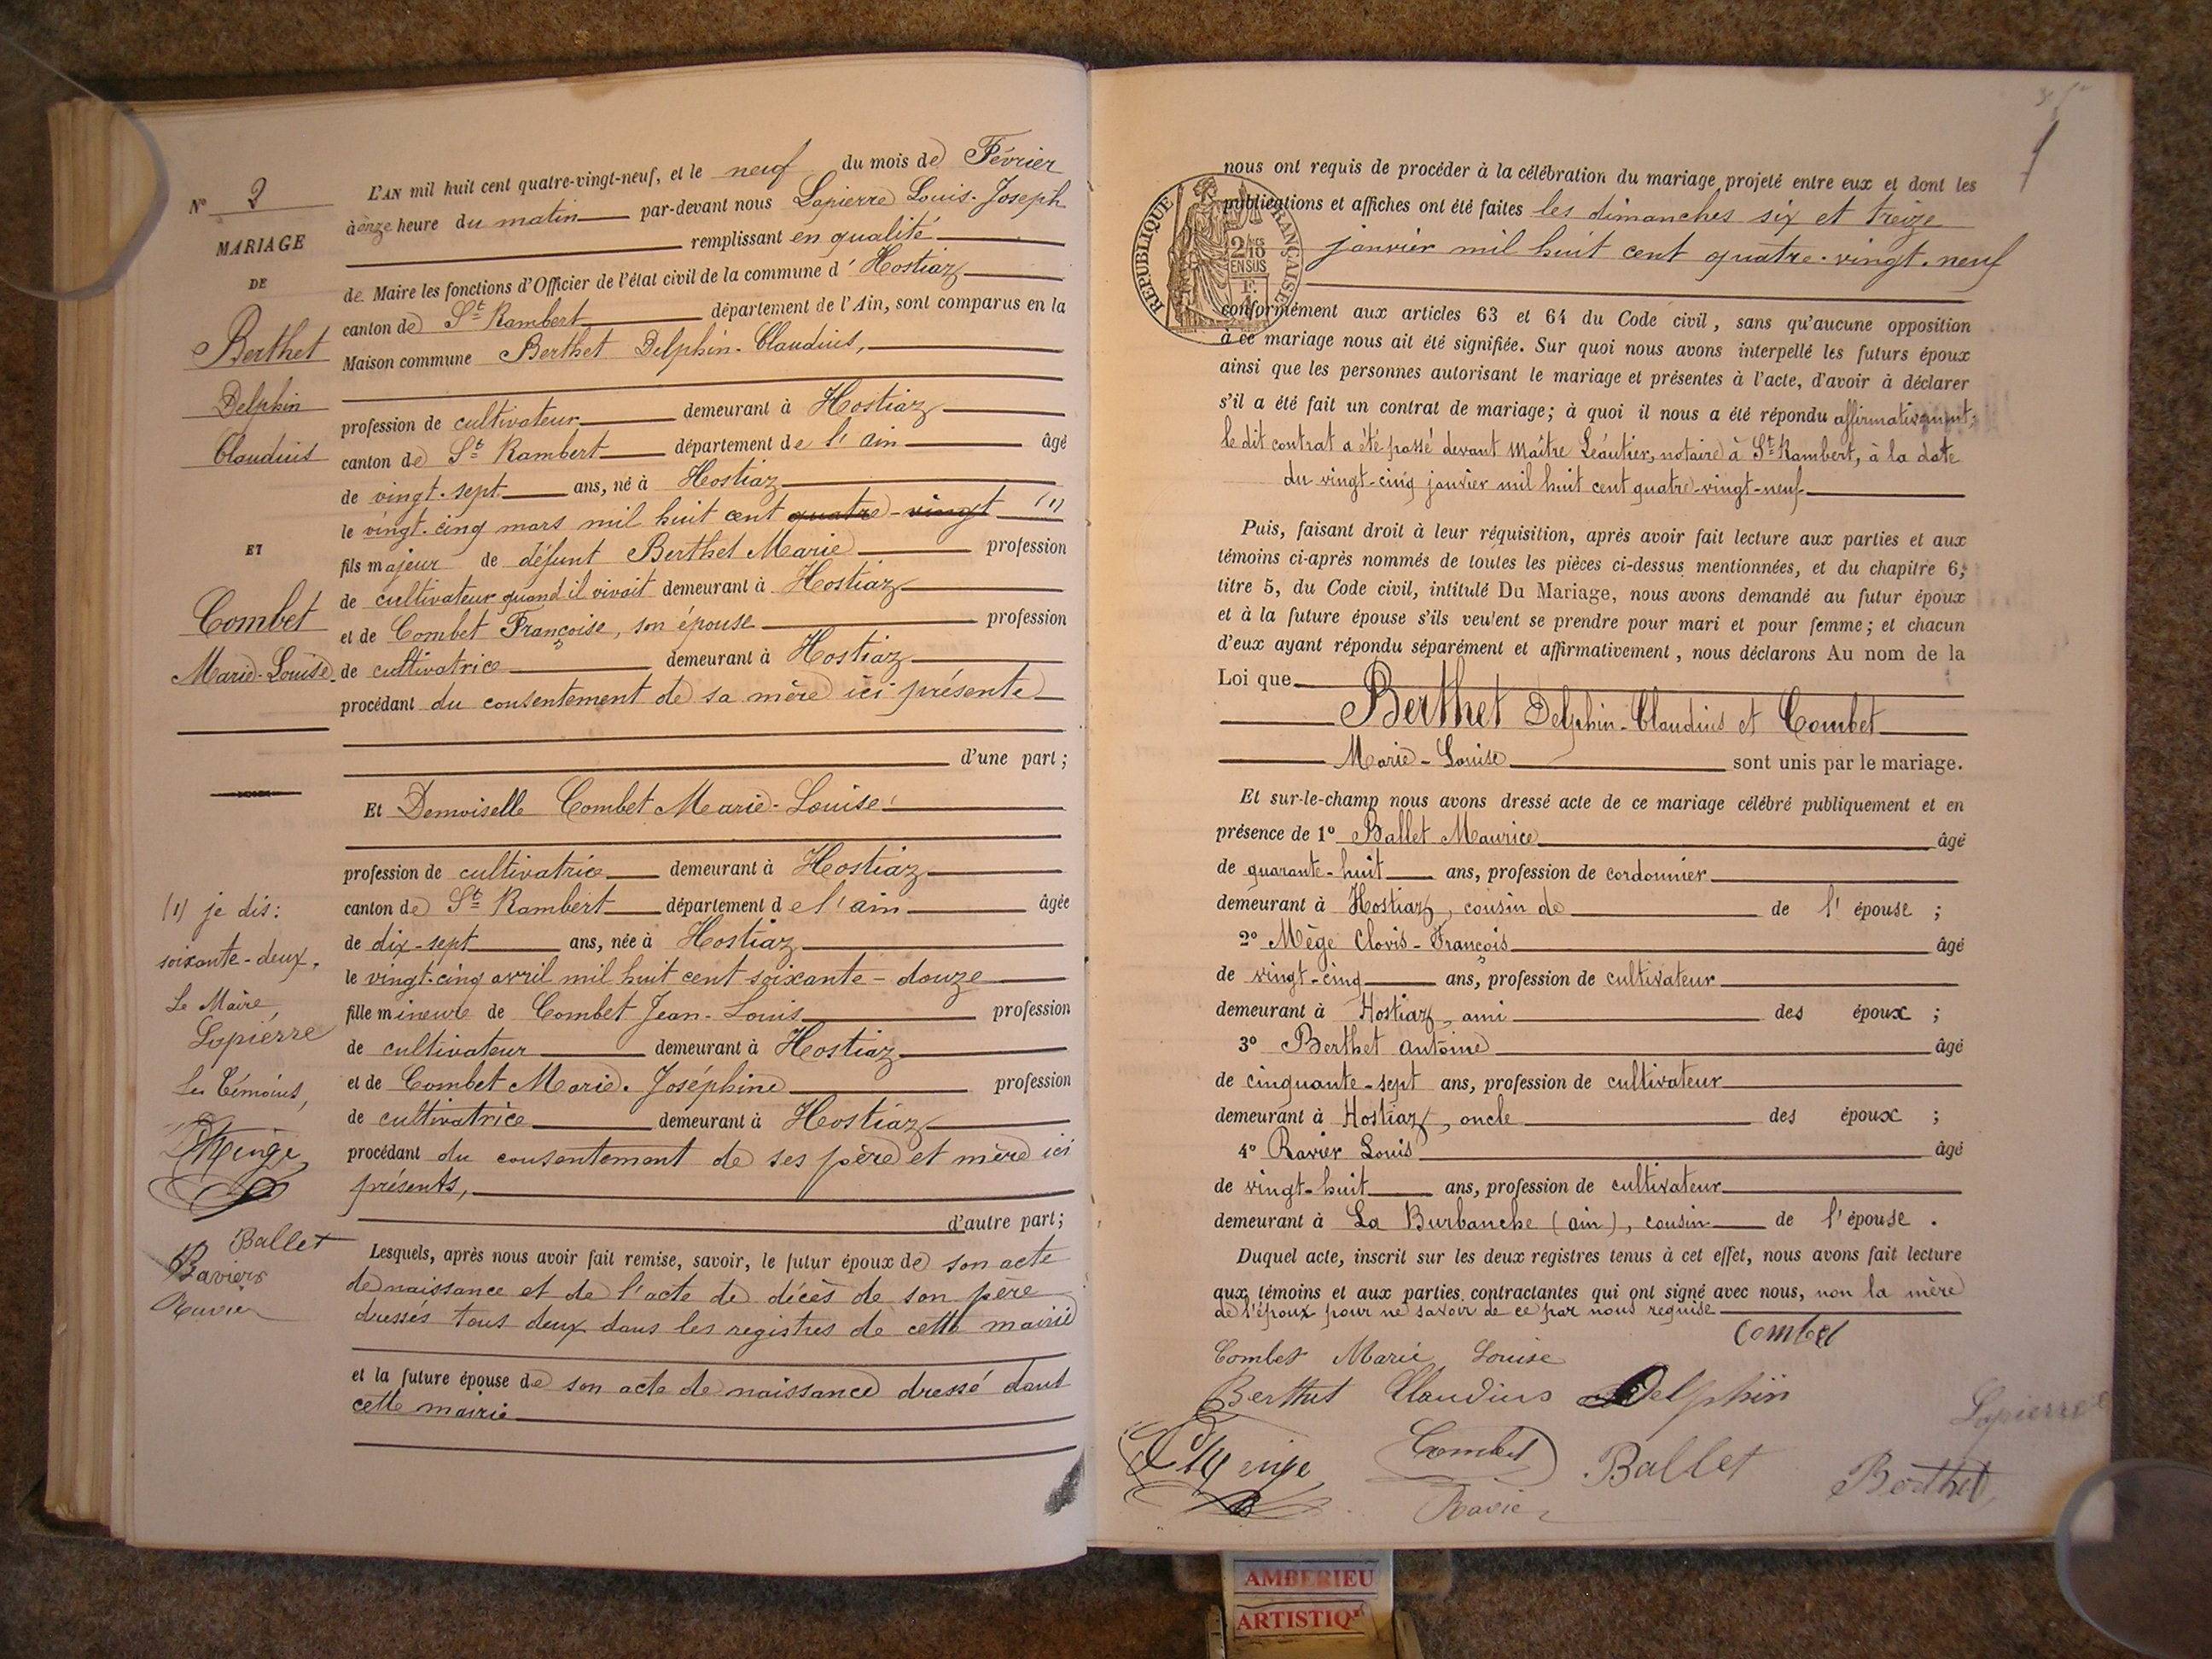 N° 2
MARIAGE
DE
Berthet
Delphin
Claudius
ET
Combet
Marie-Louise
(1) je dis:
soixante-deux.
Le Maire,
Lapierre
Les témoins,
Ballet
Ravier
L'AN mil huit cent quatre-vingt-neuf, et le neuf du mois de Février
à onze heure du matin par-devant nous Lapierre Louis-Joseph
remplissant en qualité
de Maire les fonctions d'Officier de l'état civil de la commune d'Hostiaz
canton de St Rambert département de l'Ain, sont comparus en la
Maison commune Berthet Delphin-Claudius,
profession de cultivateur demeurant à Hostiaz
canton de St Rambert département de l'ain âgé
de vingt-sept ans, né à Hostiaz
le vingt-cinq mars mil huit cent quatre-vingt (1)
fils majeur de défunt Berthet Marie profession
de cultivateur quand il vivait demeurant à Hostiaz
et de Combet Françoise, son épouse profession
de cultivatrice demeurant à Hostiaz
procédant du consentement de sa mère ici présente
d'une part;
Et Demoiselle Combet Marie-Louise
profession de cultivatrice demeurant à Hostiaz
canton de St Rambert département de l'ain âgée
de dix-sept ans, née à Hostiaz
le vingt-cinq avril mil huit cent soixante-douze
fille mineure de Combet Jean-Louis profession
de cultivateur demeurant à Hostiaz
et de Combet Marie-Joséphine profession
de cultivatrice demeurant à Hostiaz
procédant du consentement de ses père et mère ici
présents,
d'autre part;
Lesquels, après nous avoir fait remise, savoir, le futur époux de son acte
de naissance et de l'acte de décès de son père
dressés tous deux dans les registres de cette mairie
et la future épouse de son acte de naissance dressé dans
cette mairie
nous ont requis de procéder à la célébration du mariage projeté entre eux et dont les
publications et affiches ont été faites les dimanches six et treize
janvier mil huit cent quatre-vingt-neuf
RÉPUBLIQUE FRANÇAISE
EN SUS
conformément aux articles 63 et 64 du Code civil, sans qu'aucune opposition
à ce mariage nous ait été signifiée. Sur quoi nous avons interpellé les futurs époux
ainsi que les personnes autorisant le mariage et présentes à l'acte, d'avoir à déclarer
s'il a été fait un contrat de mariage; à quoi il nous a été répondu affirmativement;
le dit contrat a été passé devant Maître Léautier, notaire à St Rambert, à la date
du vingt-cinq janvier mil huit cent quatre-vingt-neuf
Puis, faisant droit à leur réquisition, après avoir fait lecture aux parties et aux
témoins ci-après nommés de toutes les pièces ci-dessus mentionnées, et du chapitre 6,
titre 5, du Code civil, intitulé Du Mariage, nous avons demandé au futur époux
et à la future épouse s'ils veulent se prendre pour mari et pour femme; et chacun
d'eux ayant répondu séparément et affirmativement, nous déclarons Au nom de la
Loi que
Berthet Delphin-Claudius et Combet
Marie-Louise sont unis par le mariage.
Et sur-le-champ nous avons dressé acte de ce mariage célébré publiquement et en
présence de 1° Ballet Maurice âgé
de quarante-huit ans, profession de cordonnier
demeurant à Hostiaz, cousin de de l'épouse;
2° Mège Clovis-François âgé
de vingt-cinq ans, profession de cultivateur
demeurant à Hostiaz, ami des époux;
3° Berthet Antoine âgé
de cinquante-sept ans, profession de cultivateur
demeurant à Hostiaz, oncle des époux;
4° Ravier Louis âgé
de vingt-huit ans, profession de cultivateur
demeurant à La Burbanche (ain), cousin de l'épouse.
Duquel acte, inscrit sur les deux registres tenus à cet effet, nous avons fait lecture
aux témoins et aux parties contractantes qui ont signé avec nous, non la mère
de l'époux pour ne savoir de ce par nous requise
Combet
Combet Marie Louise
Berthet Claudius Delphin
Lapierre
Combet Ballet
Berthet
Ravier
AMBERIEU
ARTISTIQ